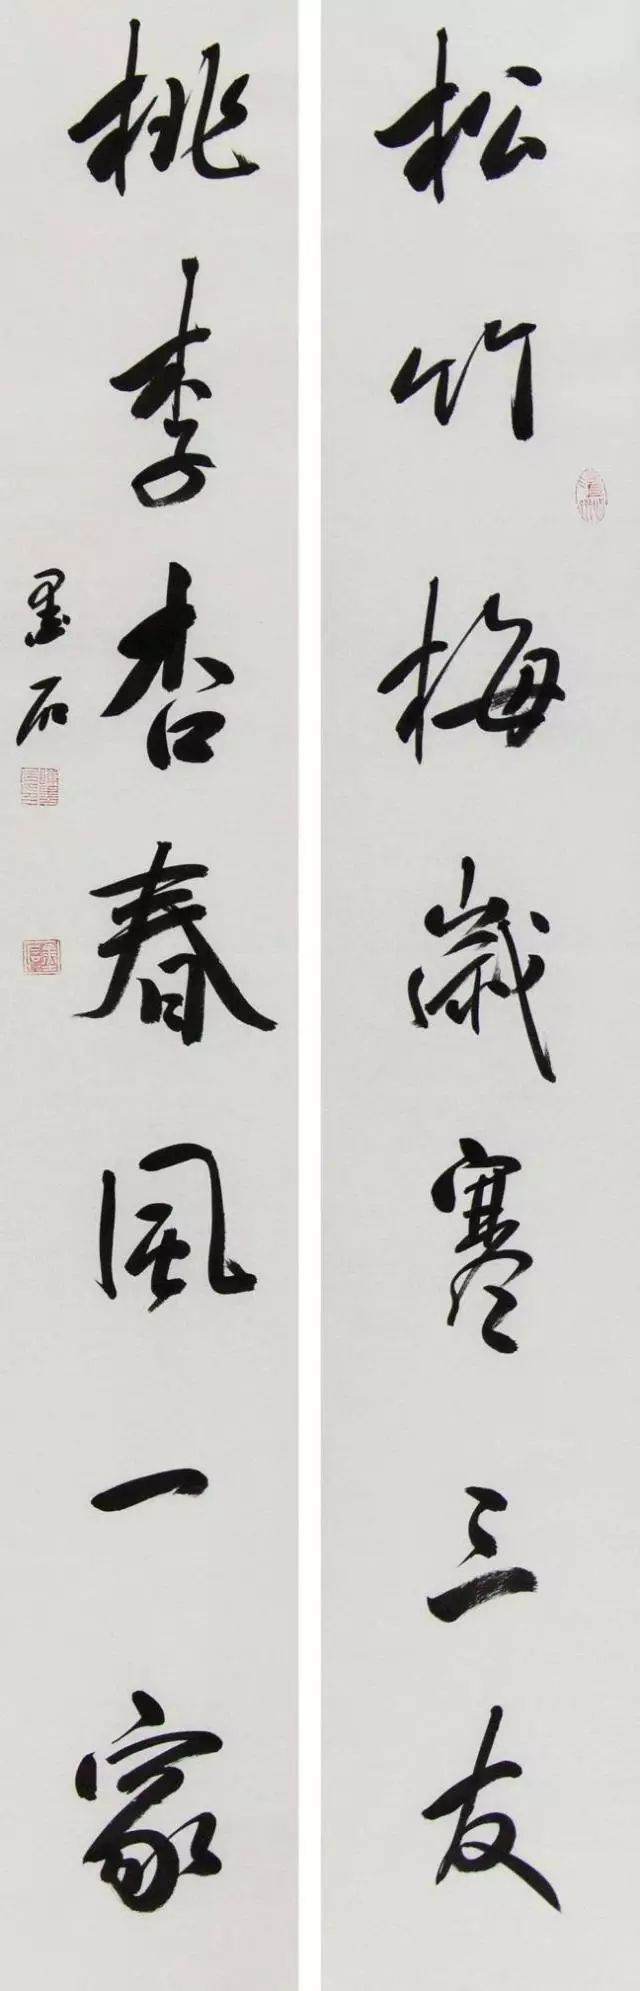 松竹梅歲寒三友
桃李杏春風一家
墨石